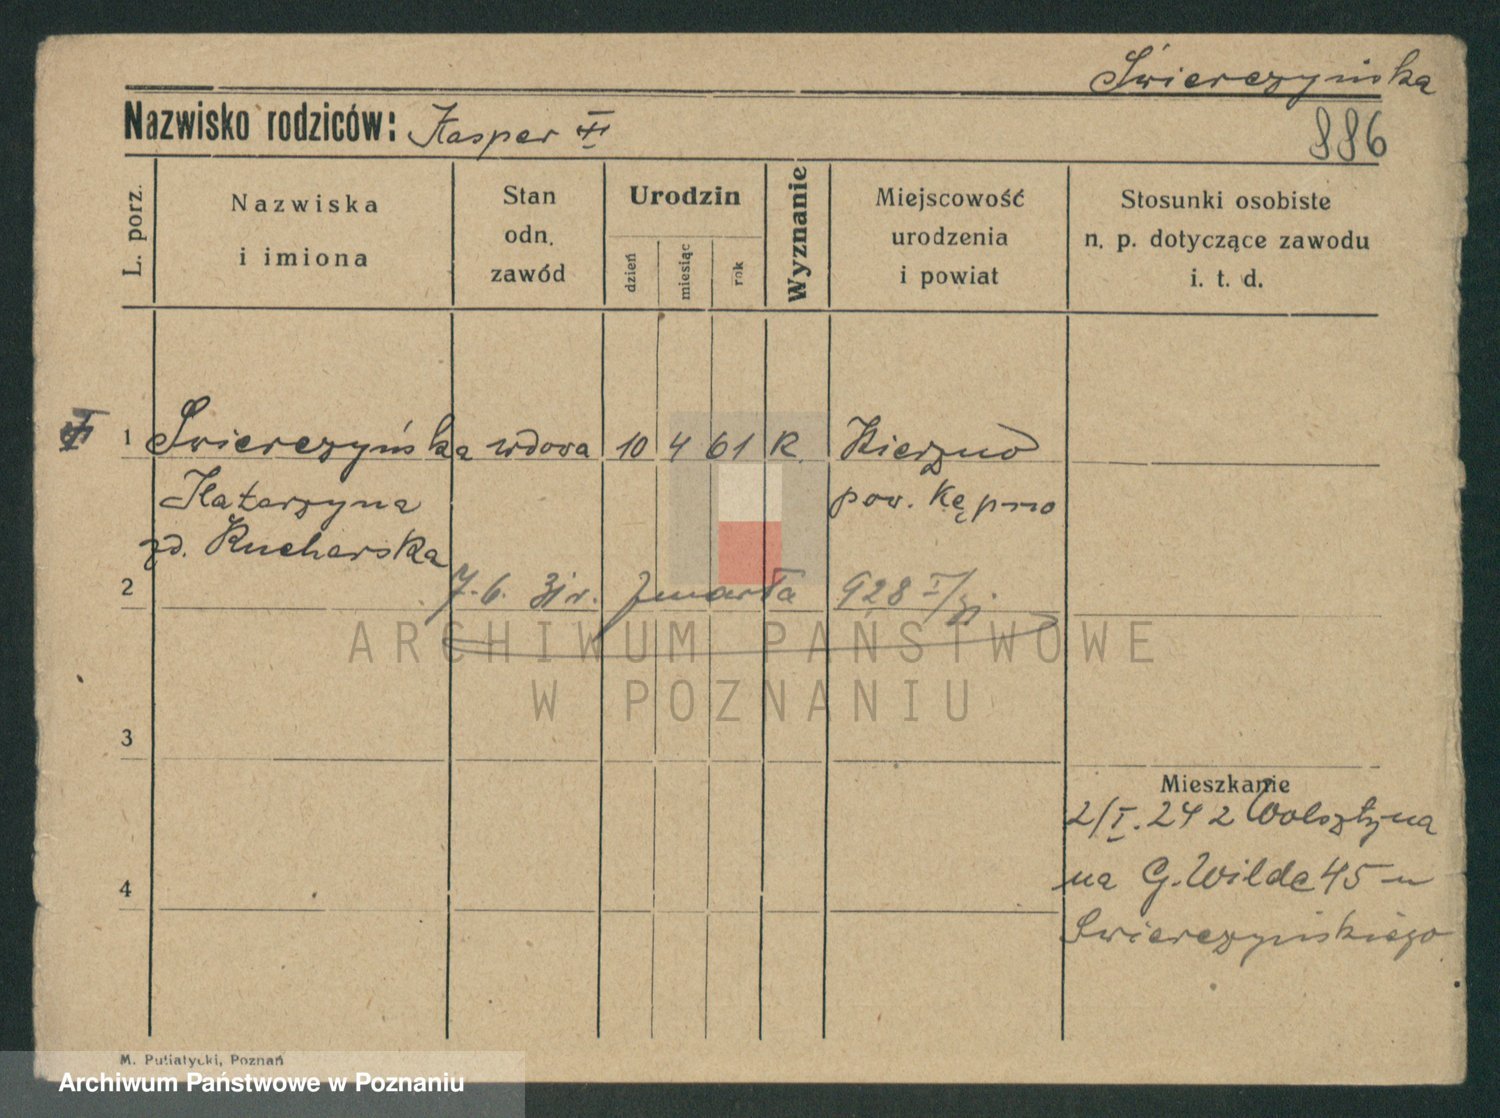 Świerczyńska
Nazwisko rodziców: Kasper
886
L. porz.
Nazwiska i imiona
Stan odn. zawód
Urodzin
dzień
miesiąc
rok
Wyznanie
Miejscowość urodzenia i powiat
Stosunki osobiste n. p. dotyczące zawodu i. t. d.
1 Świerczyńska wdowa 10 4 61 K. Kierzno
Katarzyna pow. Kępno
zd. Kucharska
2 7.6. 31 r. Zmarła 928 I/31
ARCHIWUM PAŃSTWOWE
W POZNANIU
3
Mieszkanie
2/I. 24 z Wolsztyna
4 na G. Wilde 45 u
Swierczyńskiego
M. Putiatycki, Poznań
Archiwum Państwowe w Poznaniu